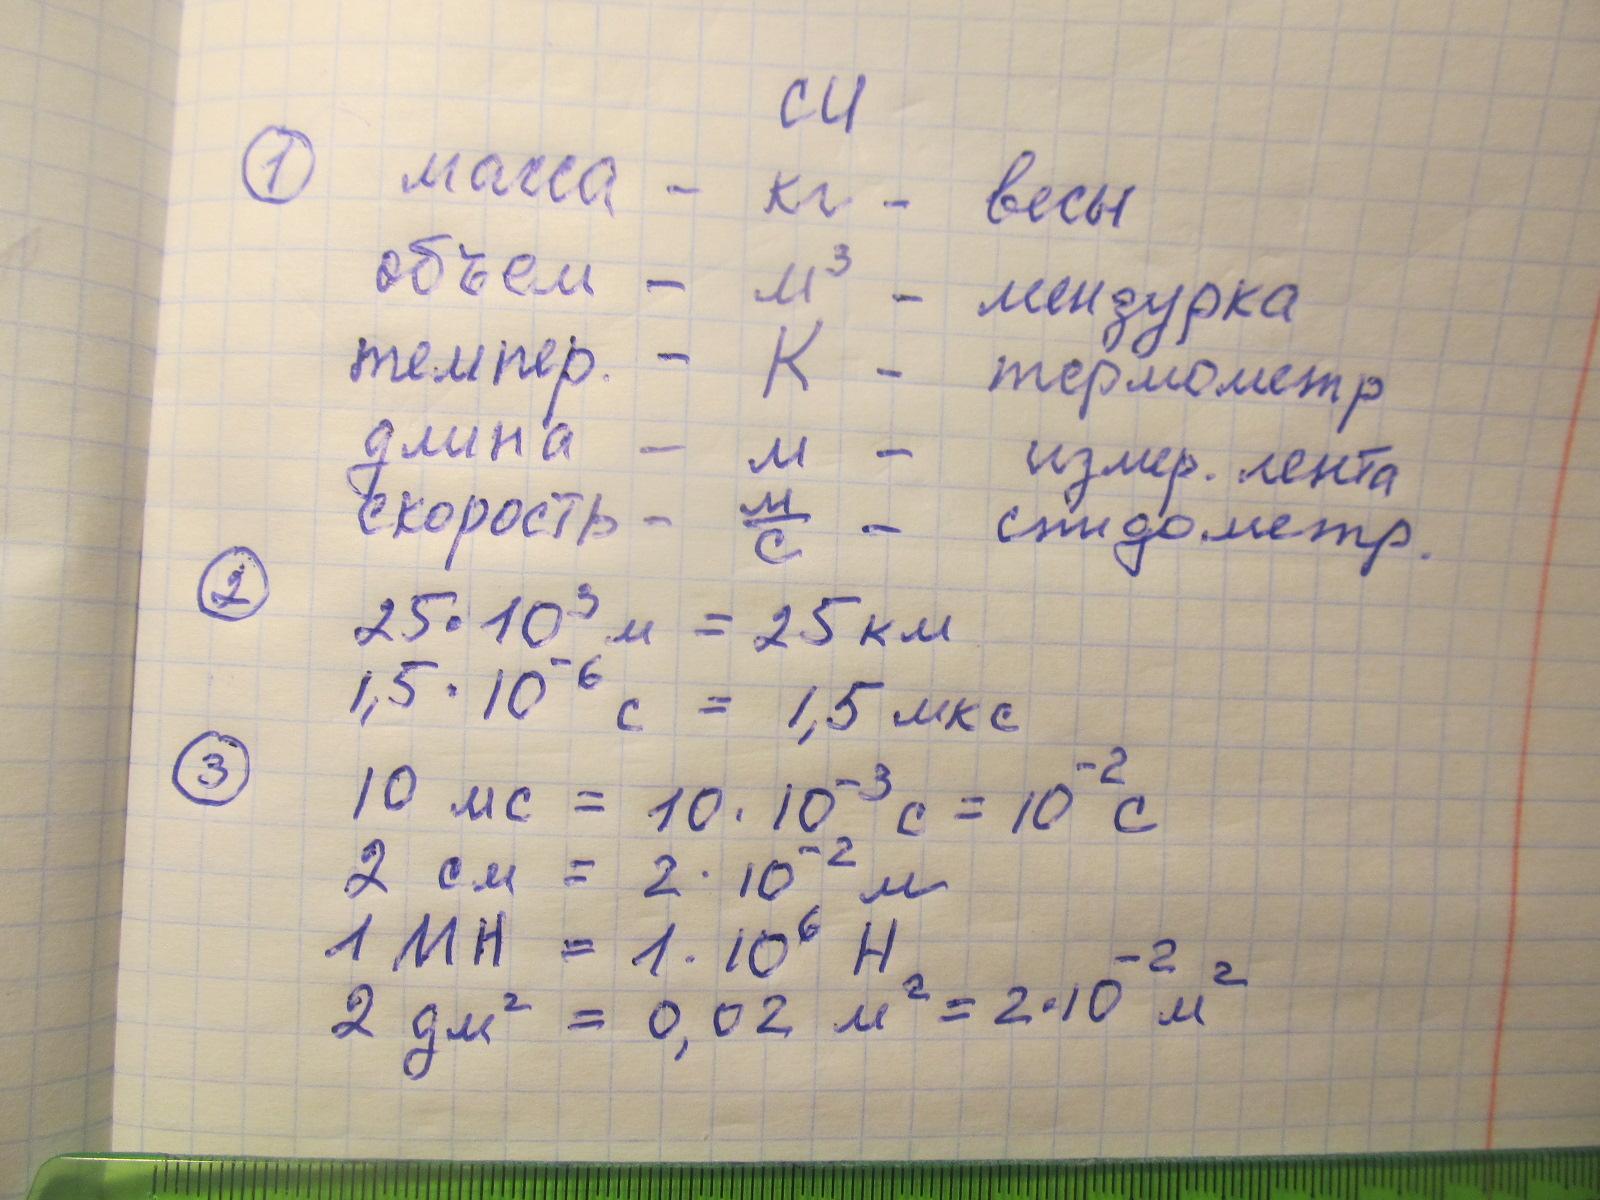 СИ
1 масса - кг - весы
объем - м³ - мензурка
темпер. - К - термометр
длина - м - измер. лента
скорость - м/с - спидометр.
2 25·10³ м = 25 км
1,5·10⁻⁶ с = 1,5 мкс
3 10 мс = 10·10⁻³ с = 10⁻² с
2 см = 2·10⁻² м
1 МН = 1·10⁶ Н
2 дм² = 0,02 м² = 2·10⁻² м²